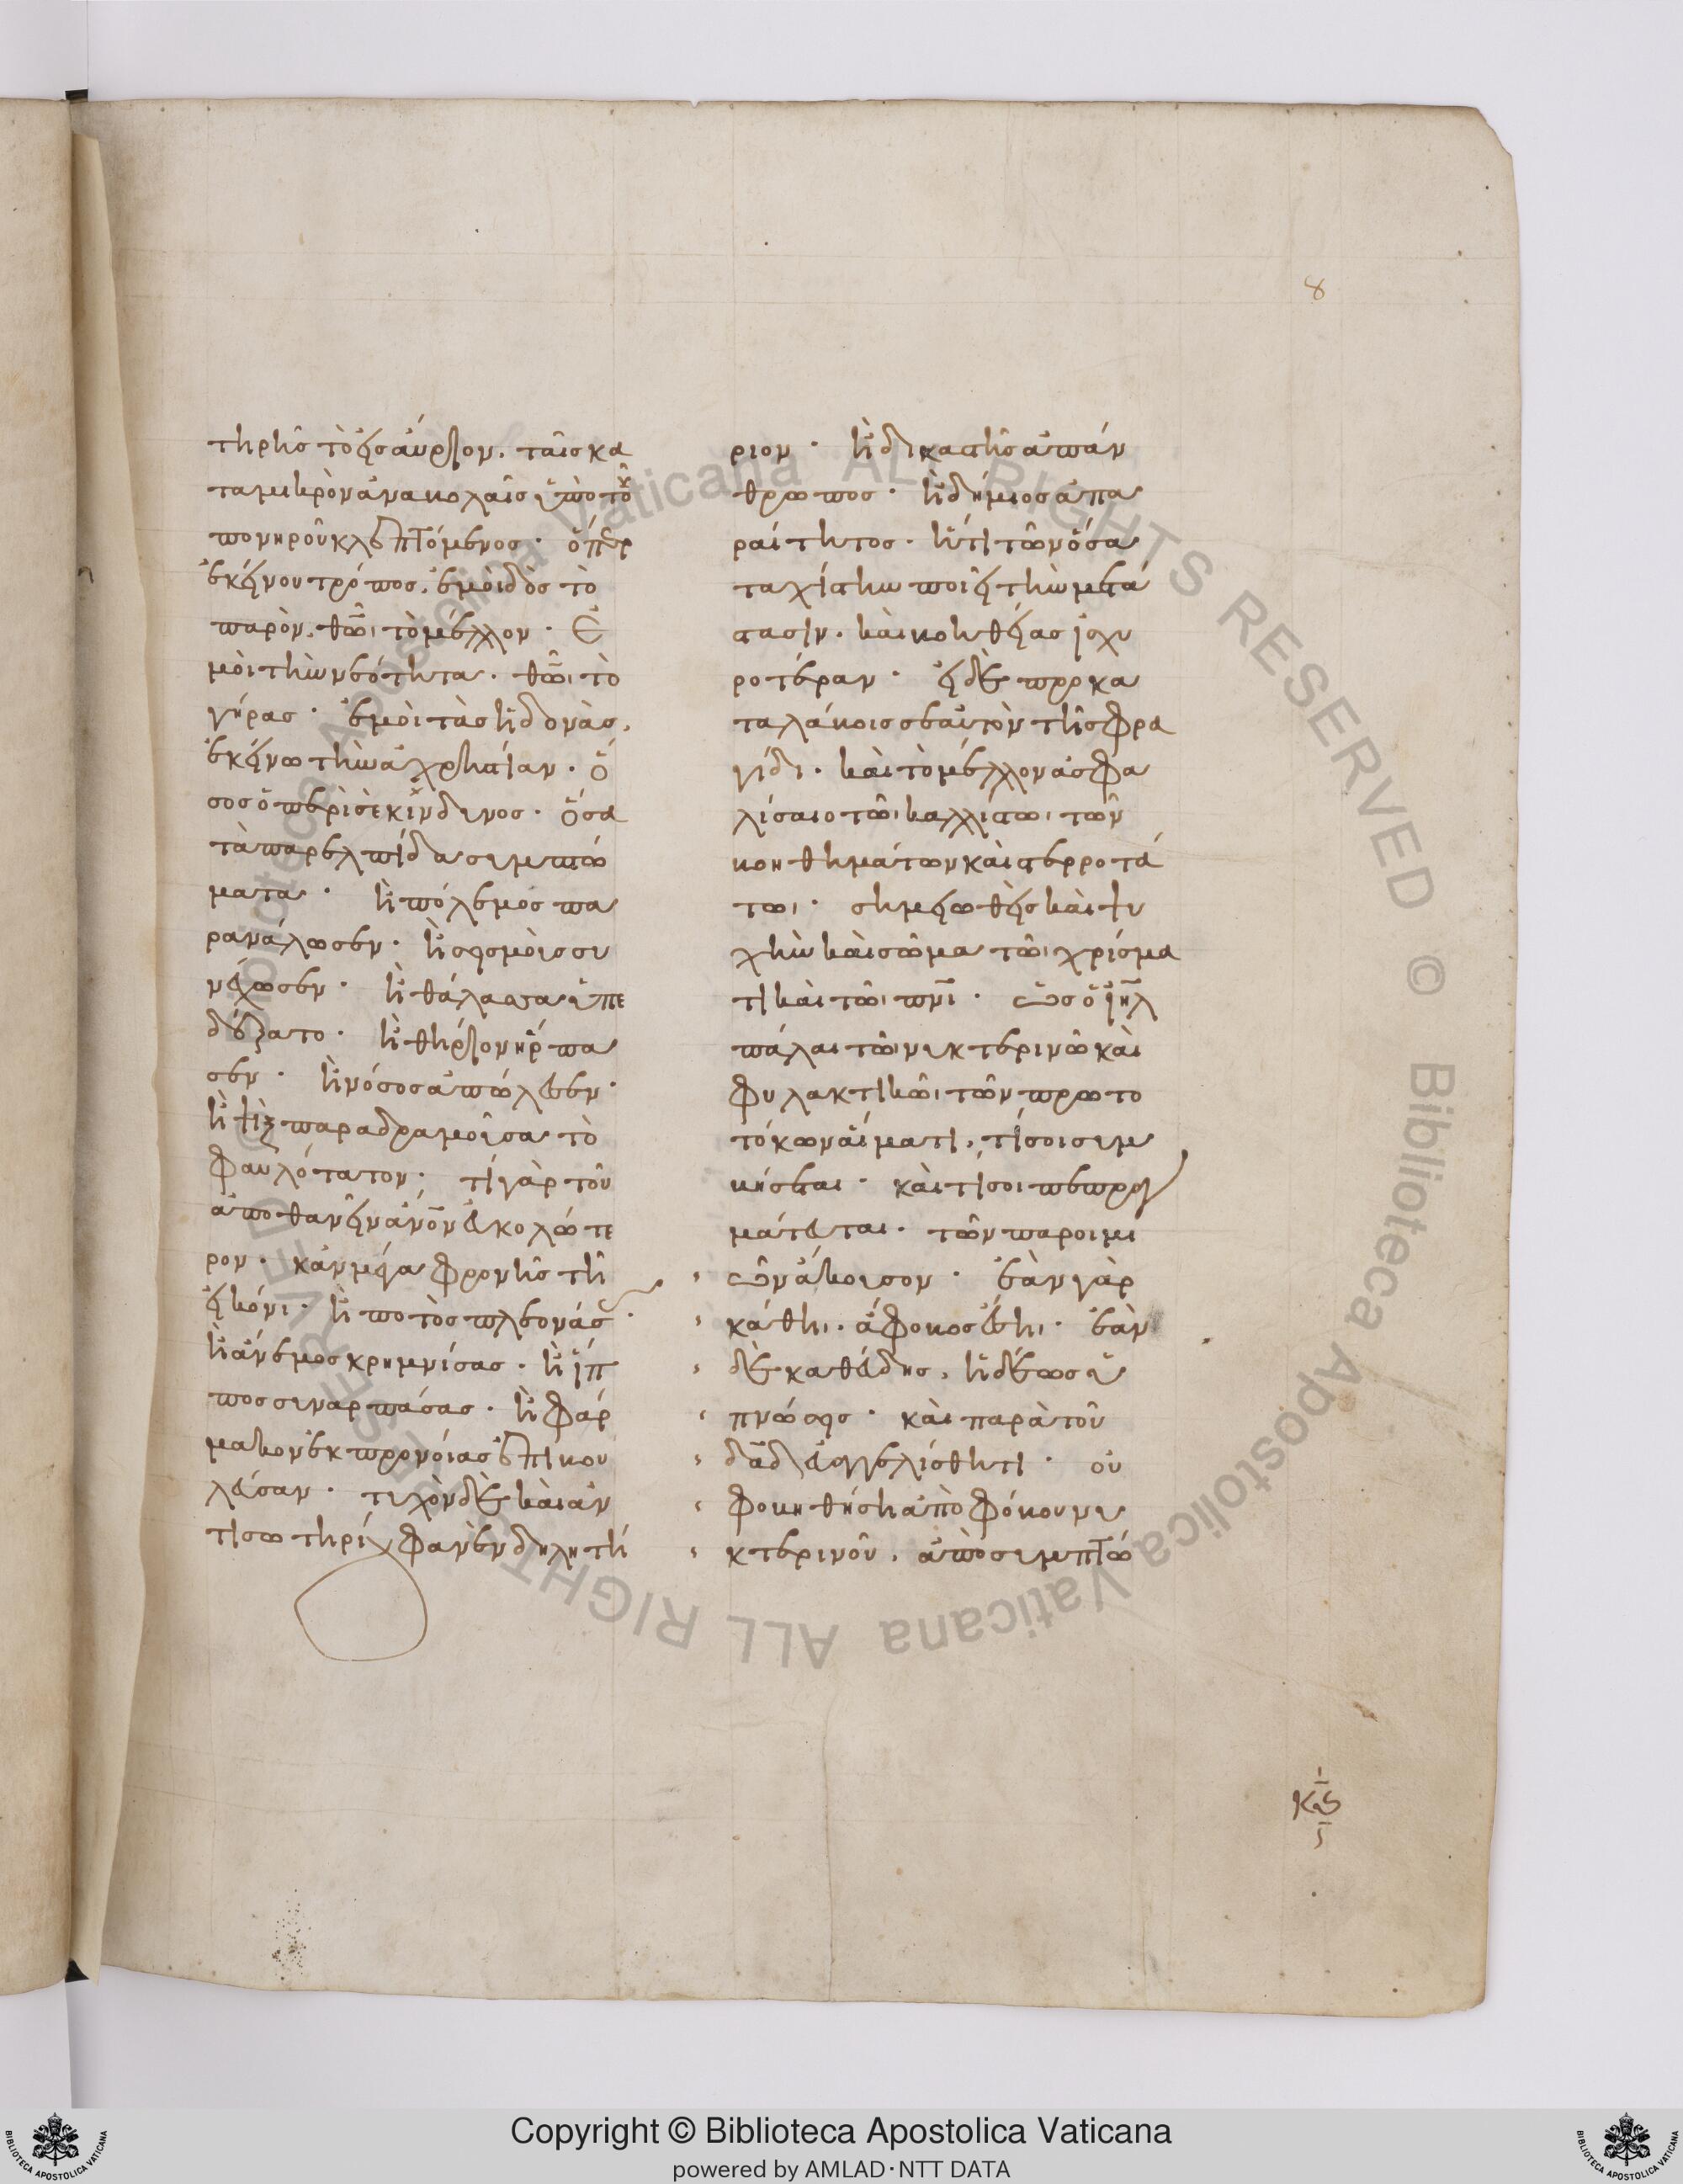 8
τηρῆς τὸ εἰσαύριον. ταῖς κα
τα μικρὸν ἀναβολαῖς ὑπὸ τοῦ
πονηροῦ κλεπτόμενος · ὅπερ
ἐκείνου τρόπος. ἐμοὶ δὸς τὸ
παρὸν. θῶ τὸ μέλλον · Ἐ
μοὶ τὴν νεότητα. θῶ τὸ
γήρας · ἐμοὶ τὰς ἡδονὰς.
ἐκείνω τὴν ἀχρηστίαν · ὅ
σος ὁ περὶ σὲ κίνδυνος · ὅσα
τὰ παρελπίδα συμπτώ
ματα · ἢ πόλεμος πα
ρανάλωσεν · ἢ σεισμὸς συ
νέχωσεν · ἢ θάλασσα ὑπε
δέξατο · ἢ θηρίον ἥρπα
σεν · ἢ νόσος ἀπώλεσεν ·
ἢ ψὶξ παραδραμοῦσα τὸ
φαυλότατον · τί γὰρ τοῦ
ἀποθανεῖν ἄνον εὐκολώτε
ρον · κἂν μέγα φρονῆς τῆ
εἰκόνι · ἢ πότος πλεονάσ
ἢ ἄνεμος κρημνίσας · ἢ ἵπ
πος συναρπάσας · ἢ φάρ
μακον ἐκ προνοίας ἐπιβου
λεῦσαν · τυχὸν δὲ καὶ ἀν
τι σωτηρί φανὲν δηλητή
ριον · ἢ δικαστὴς ἀπάν
θρωπος · ἢ δήμιος ἀπα
ραίτητος · ἤ τι τῶν ὅσα
ταχίστην ποιεῖ τὴν μετά
στασιν. καὶ βοηθείας ἰσχυ
ροτέραν · εἰ δὲ προκα
ταλάβοις σεαυτὸν τῆ σφρα
γίδι. καὶ τὸ μέλλον ἀσφα
λίσαιο τῶ καλλίστω τῶν
βοηθημάτων καὶ στερροτά
τω · σημειωθεὶς καὶ ψυ
χὴν καὶ σῶμα τῶ χρίσμα
τι καὶ τῶ πνι · ὡς ὁ ἰηλ
πάλαι τῶ νυκτερινῶ καὶ
φυλακτικῶ τῶν πρωτο
τόκων αἵματι, τί σοι συμ
βήσεται · καὶ τί σοι πεπραγ
μάτευται · τῶν παροιμι
ῶν ἄκουσον · ἐὰν γὰρ
κάθη. ἄφοβος ἔση · ἐὰν
δὲ καθεύδης, ἡδέως ὑ
πνώσεις · καὶ παρὰ τοῦ
δαδ εὐαγγελίσθητι · οὐ
φοβηθήση ἀπὸ φόβου νυ
κτερινοῦ. ἀπὸ συμπτώ